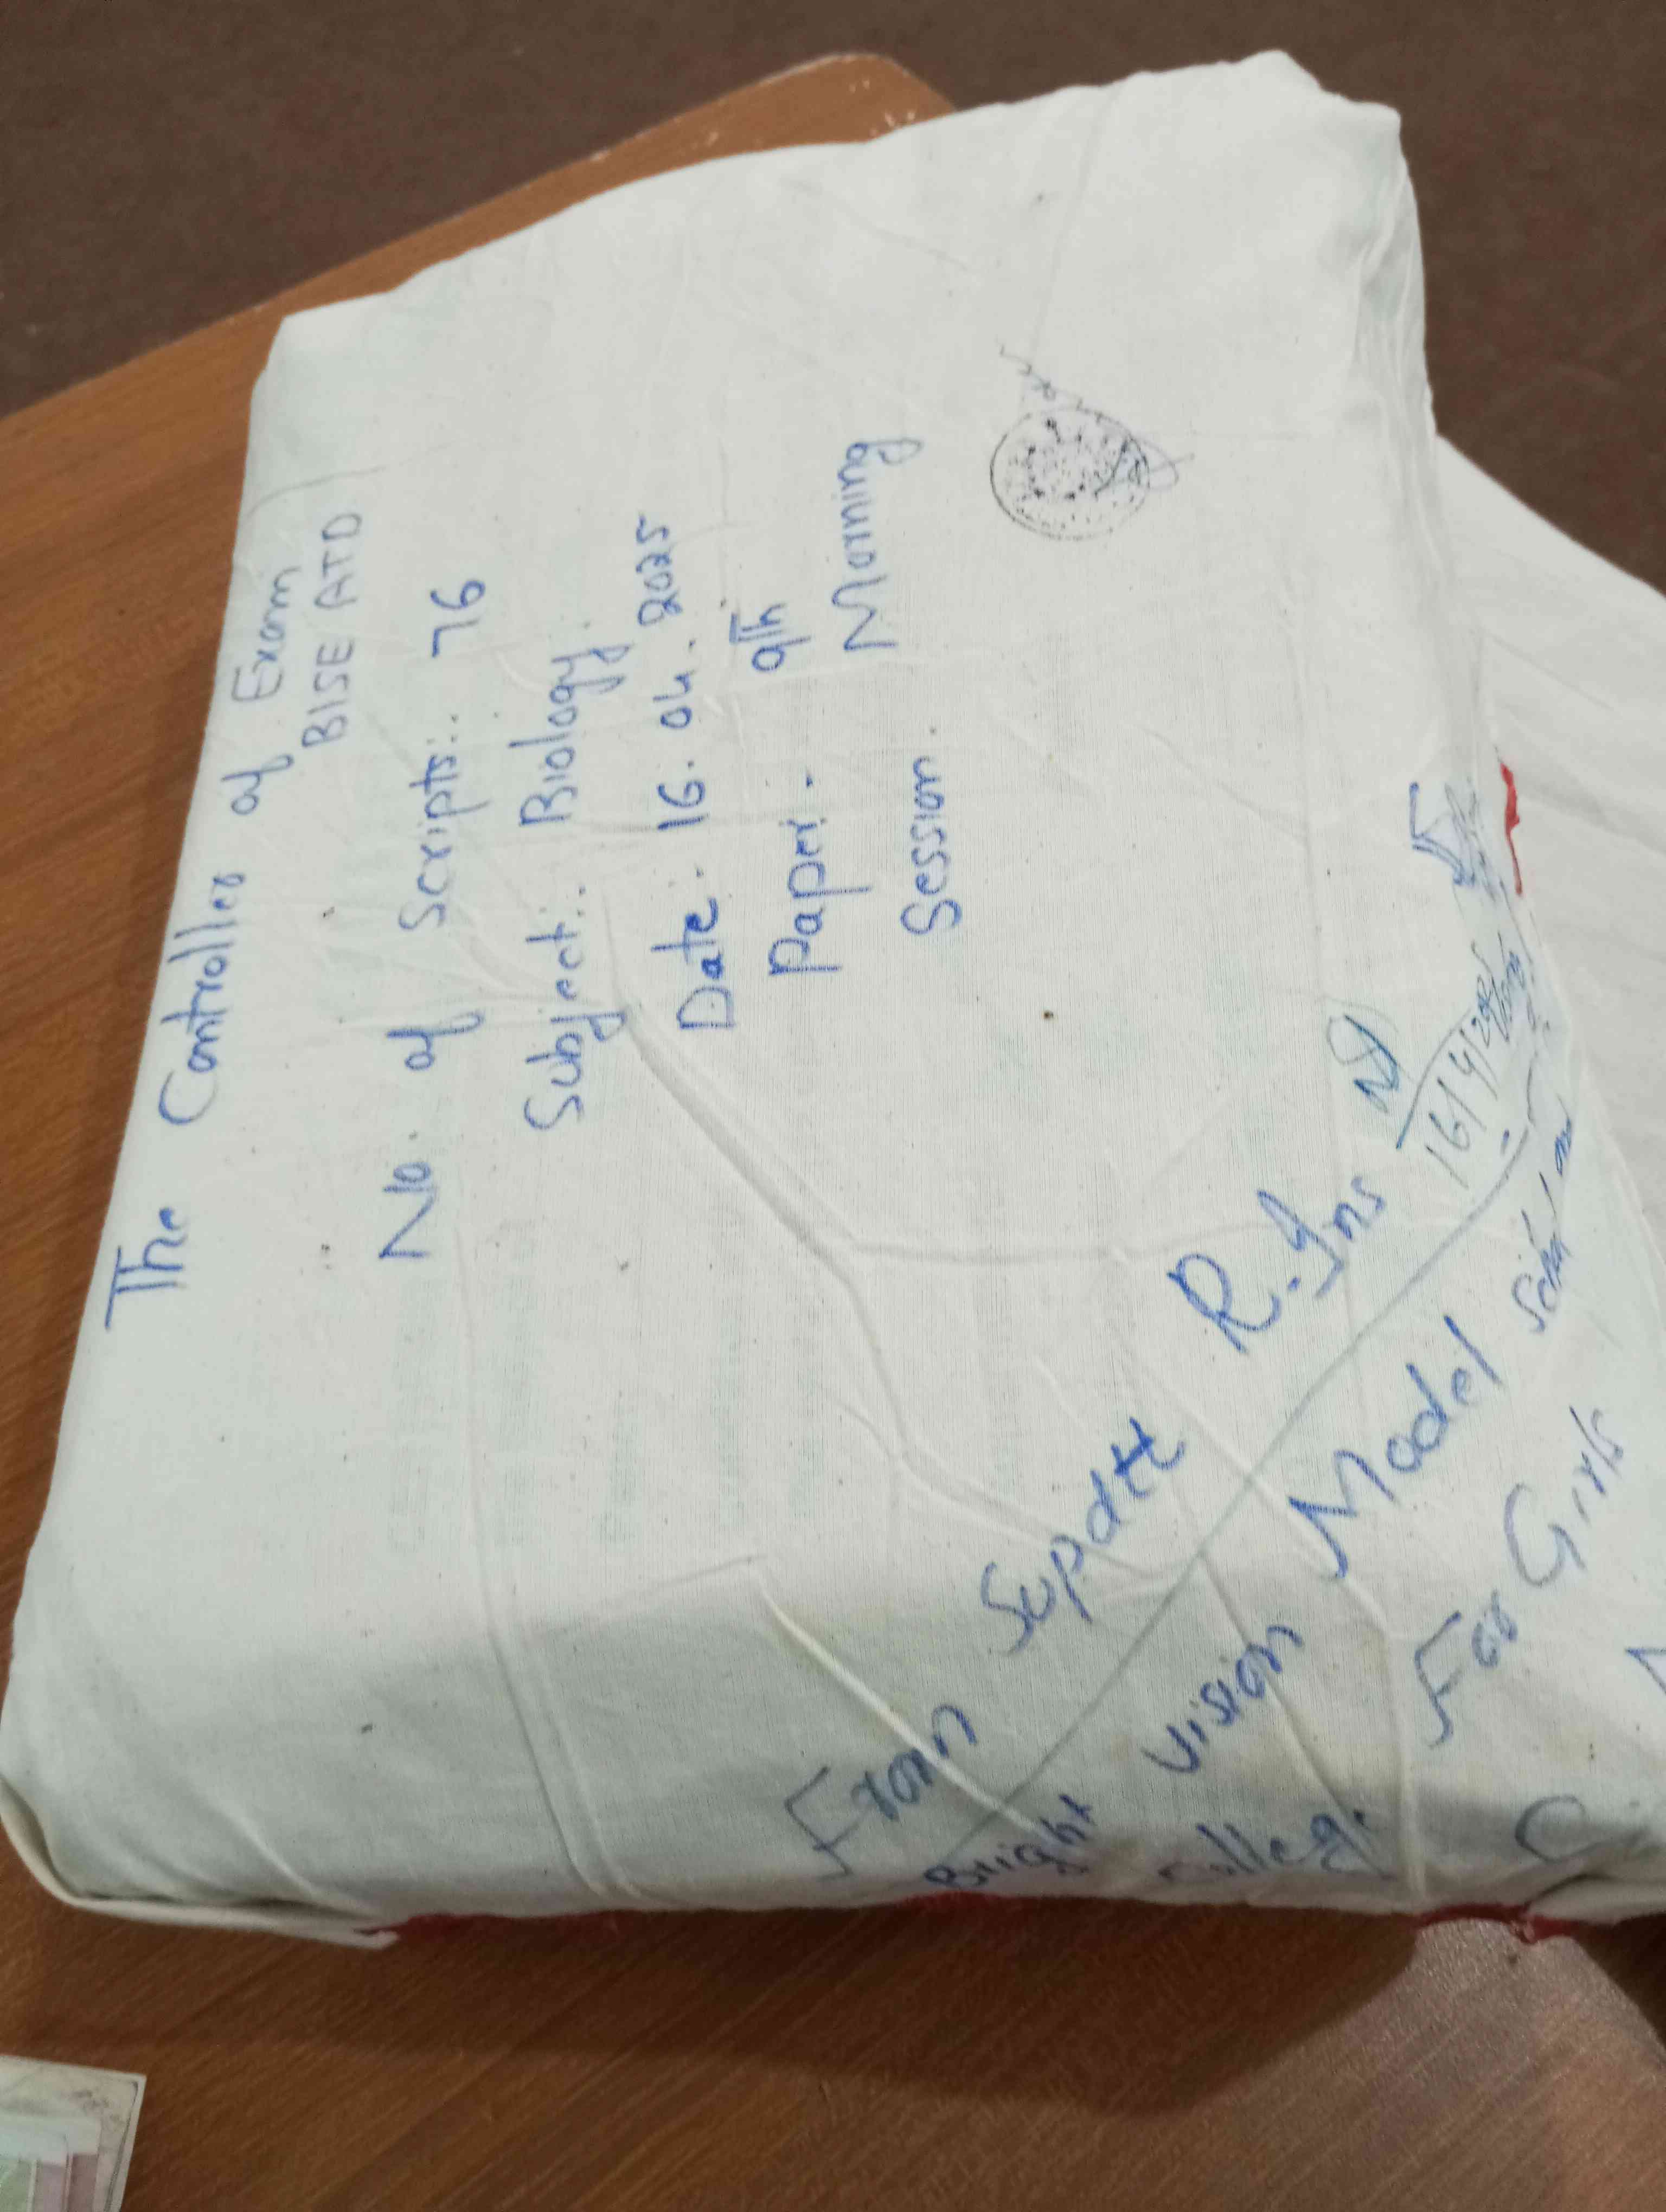 The Controller of Exam
BISE ATD
No. of Scripts: 76
Subject: Biology.
Date: 16.04.2025
Paper: 9th
Session. Morning
From Supdtt R.Ins
16/4/2025
Bright Vision Model School and
College For Girls